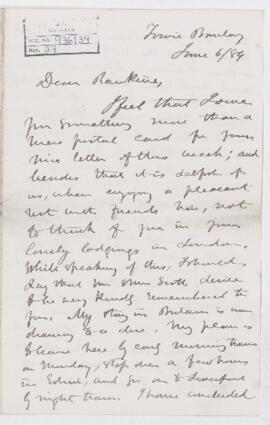 ACC. NO. 976/34
REF. 24
June 6/84
Dear Rankine,
I feel that I owe
you something more than a
mere postal card for your
nice letter of this week; and
besides that it is selfish of
us, when enjoying a pleasant
visit with friends here, not
to think of you in your
lonely lodgings in London.
While speaking of this, I should
say that Mr. & Mrs. Scott desire
to be very kindly remembered to
you. My stay in Britain is now
drawing to a close. My plan is
to leave here by early morning train
on Monday, stop over a few hours
in Edinr, and go on to Liverpool
by night train. I have concluded